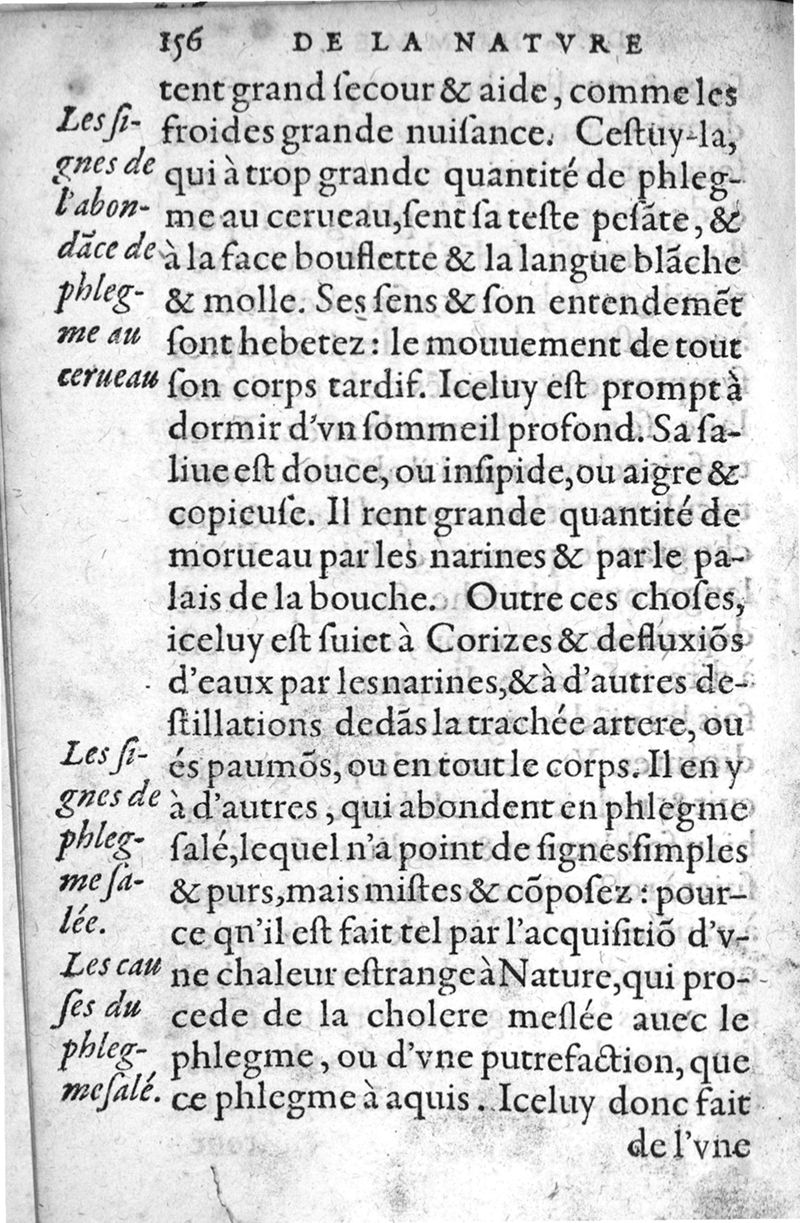 156 DE LA NATVRE
tent grand ſecour & aide, comme les
froides grande nuiſance. Ceſtuy-la,
qui à trop grande quantité de phleg-
me au cerueau, ſent ſa teſte peſãte, &
à la face bouflette & la langue blãche
& molle. Ses ſens & ſon entendemẽt
ſont hebetez : le mouuement de tout
ſon corps tardif. Iceluy eſt prompt à
dormir d'vn ſommeil profond. Sa ſa-
liue eſt douce, ou inſipide, ou aigre &
copieuſe. Il rent grande quantité de
morueau par les narines & par le pa-
lais de la bouche. Outre ces choſes,
iceluy eſt ſuiet à Corizes & defluxiõs
d'eaux par les narines, & à d'autres de-
ſtillations dedãs la trachée artere, ou
és paumõs, ou en tout le corps. Il en y
à d'autres, qui abondent en phlegme
ſalé, lequel n'a point de ſignes ſimples
& purs, mais miſtes & cõpoſez : pour-
ce qn'il eſt fait tel par l'acquiſitiõ d'v-
ne chaleur eſtrange à Nature, qui pro-
cede de la cholere meſlée auec le
phlegme, ou d'vne putrefaction, que
ce phlegme à aquis. Iceluy donc fait
de l'vne
Les ſi-
gnes de
l'abon-
dãce de
phleg-
me au
cerueau
Les ſi-
gnes de
phleg-
me ſa-
lée.
Les cau
ſes du
phleg-
me ſalé.